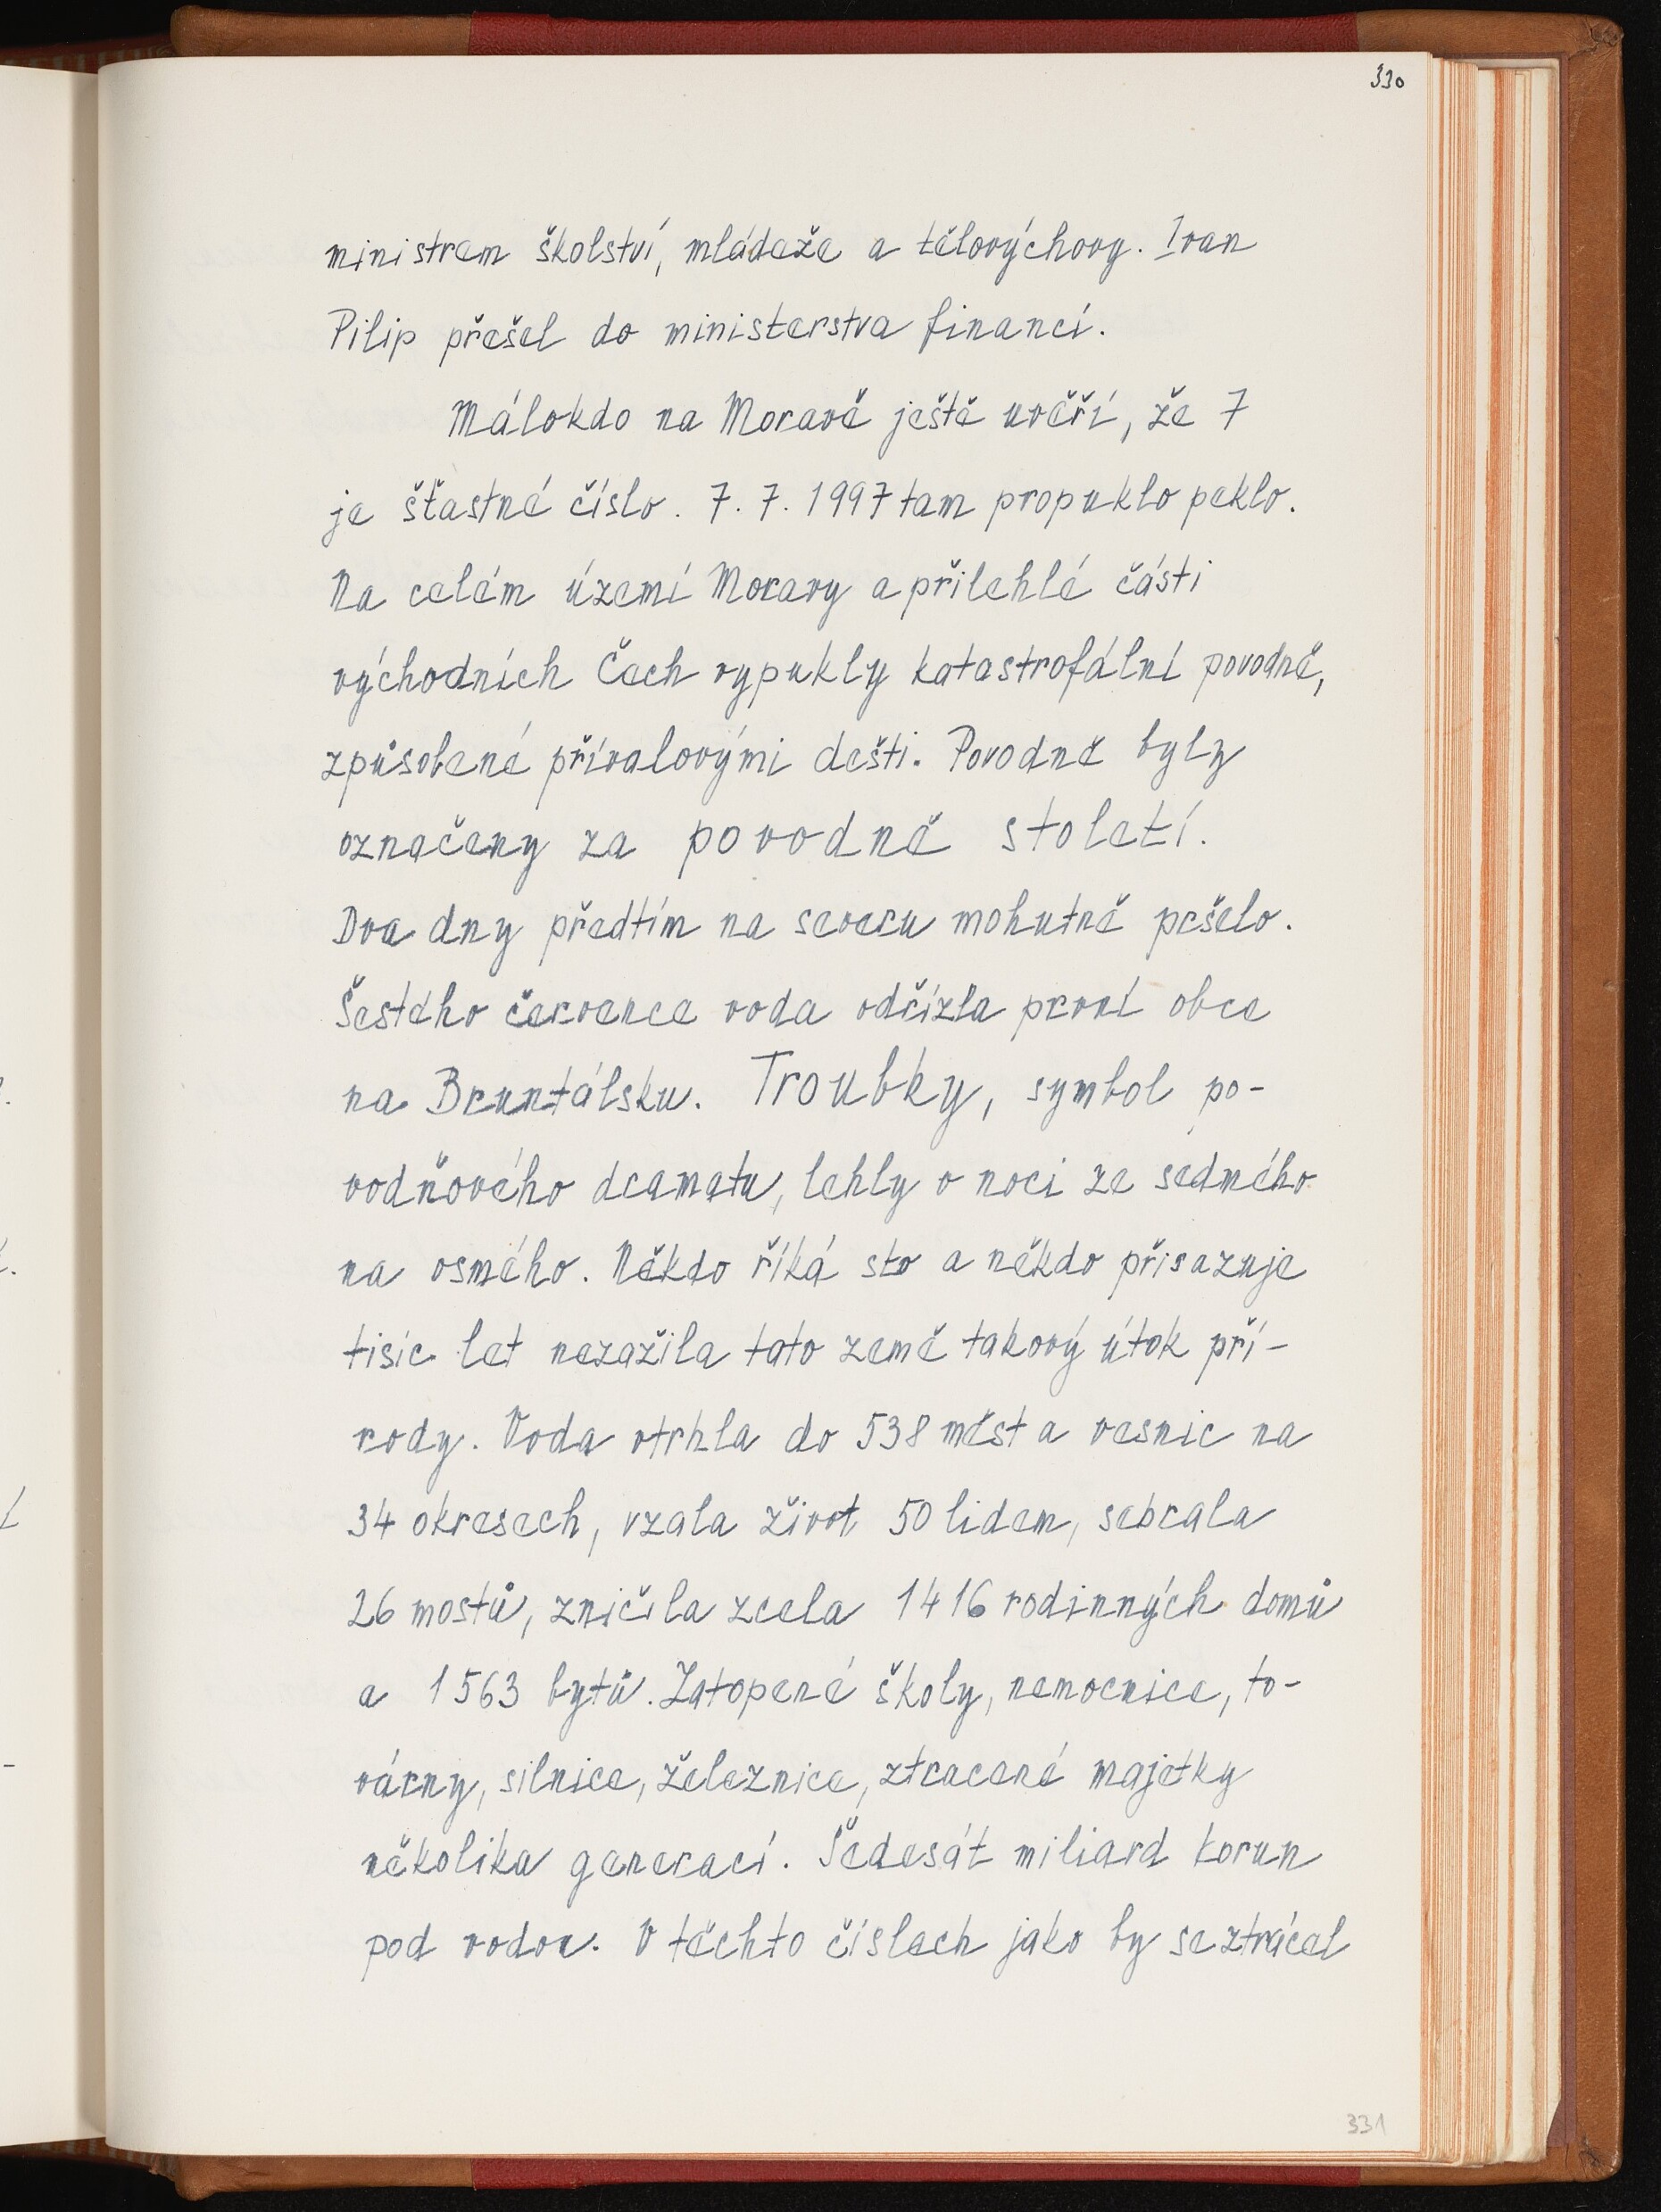 330
ministrem školství, mládeže a tělovýchovy. Ivan
Pilip přešel do ministerstva financí.
Málokdo na Moravě ještě uvěří, že 7
je šťastné číslo. 7. 7. 1997 tam propuklo peklo.
Na celém území Moravy a přilehlé části
východních Čech vypukly katastrofální povodně,
způsobené přívalovými dešti. Povodně byly
označeny za povodně století.
Dva dny předtím na severu mohutně pršelo.
Šestého července voda odřízla první obce
na Bruntálsku. Troubky, symbol po-
vodňového dramatu, lehly v noci ze sedmého
na osmého. Někdo říká sto a někdo přisazuje
tisíc let nezažila tato země takový útok pří-
rody. Voda vtrhla do 538 měst a vesnic na
34 okresech, vzala život 50 lidem, sebrala
26 mostů, zničila zcela 1416 rodinných domů
a 1563 bytů. Zatopené školy, nemocnice, to-
várny, silnice, železnice, ztracené majetky
několika generací. Šedesát miliard korun
pod vodou. V těchto číslech jako by se ztrácel
331